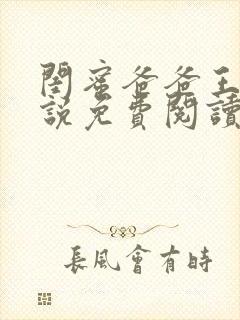 閨蜜爸爸王
說免費閱讀
長風會有時